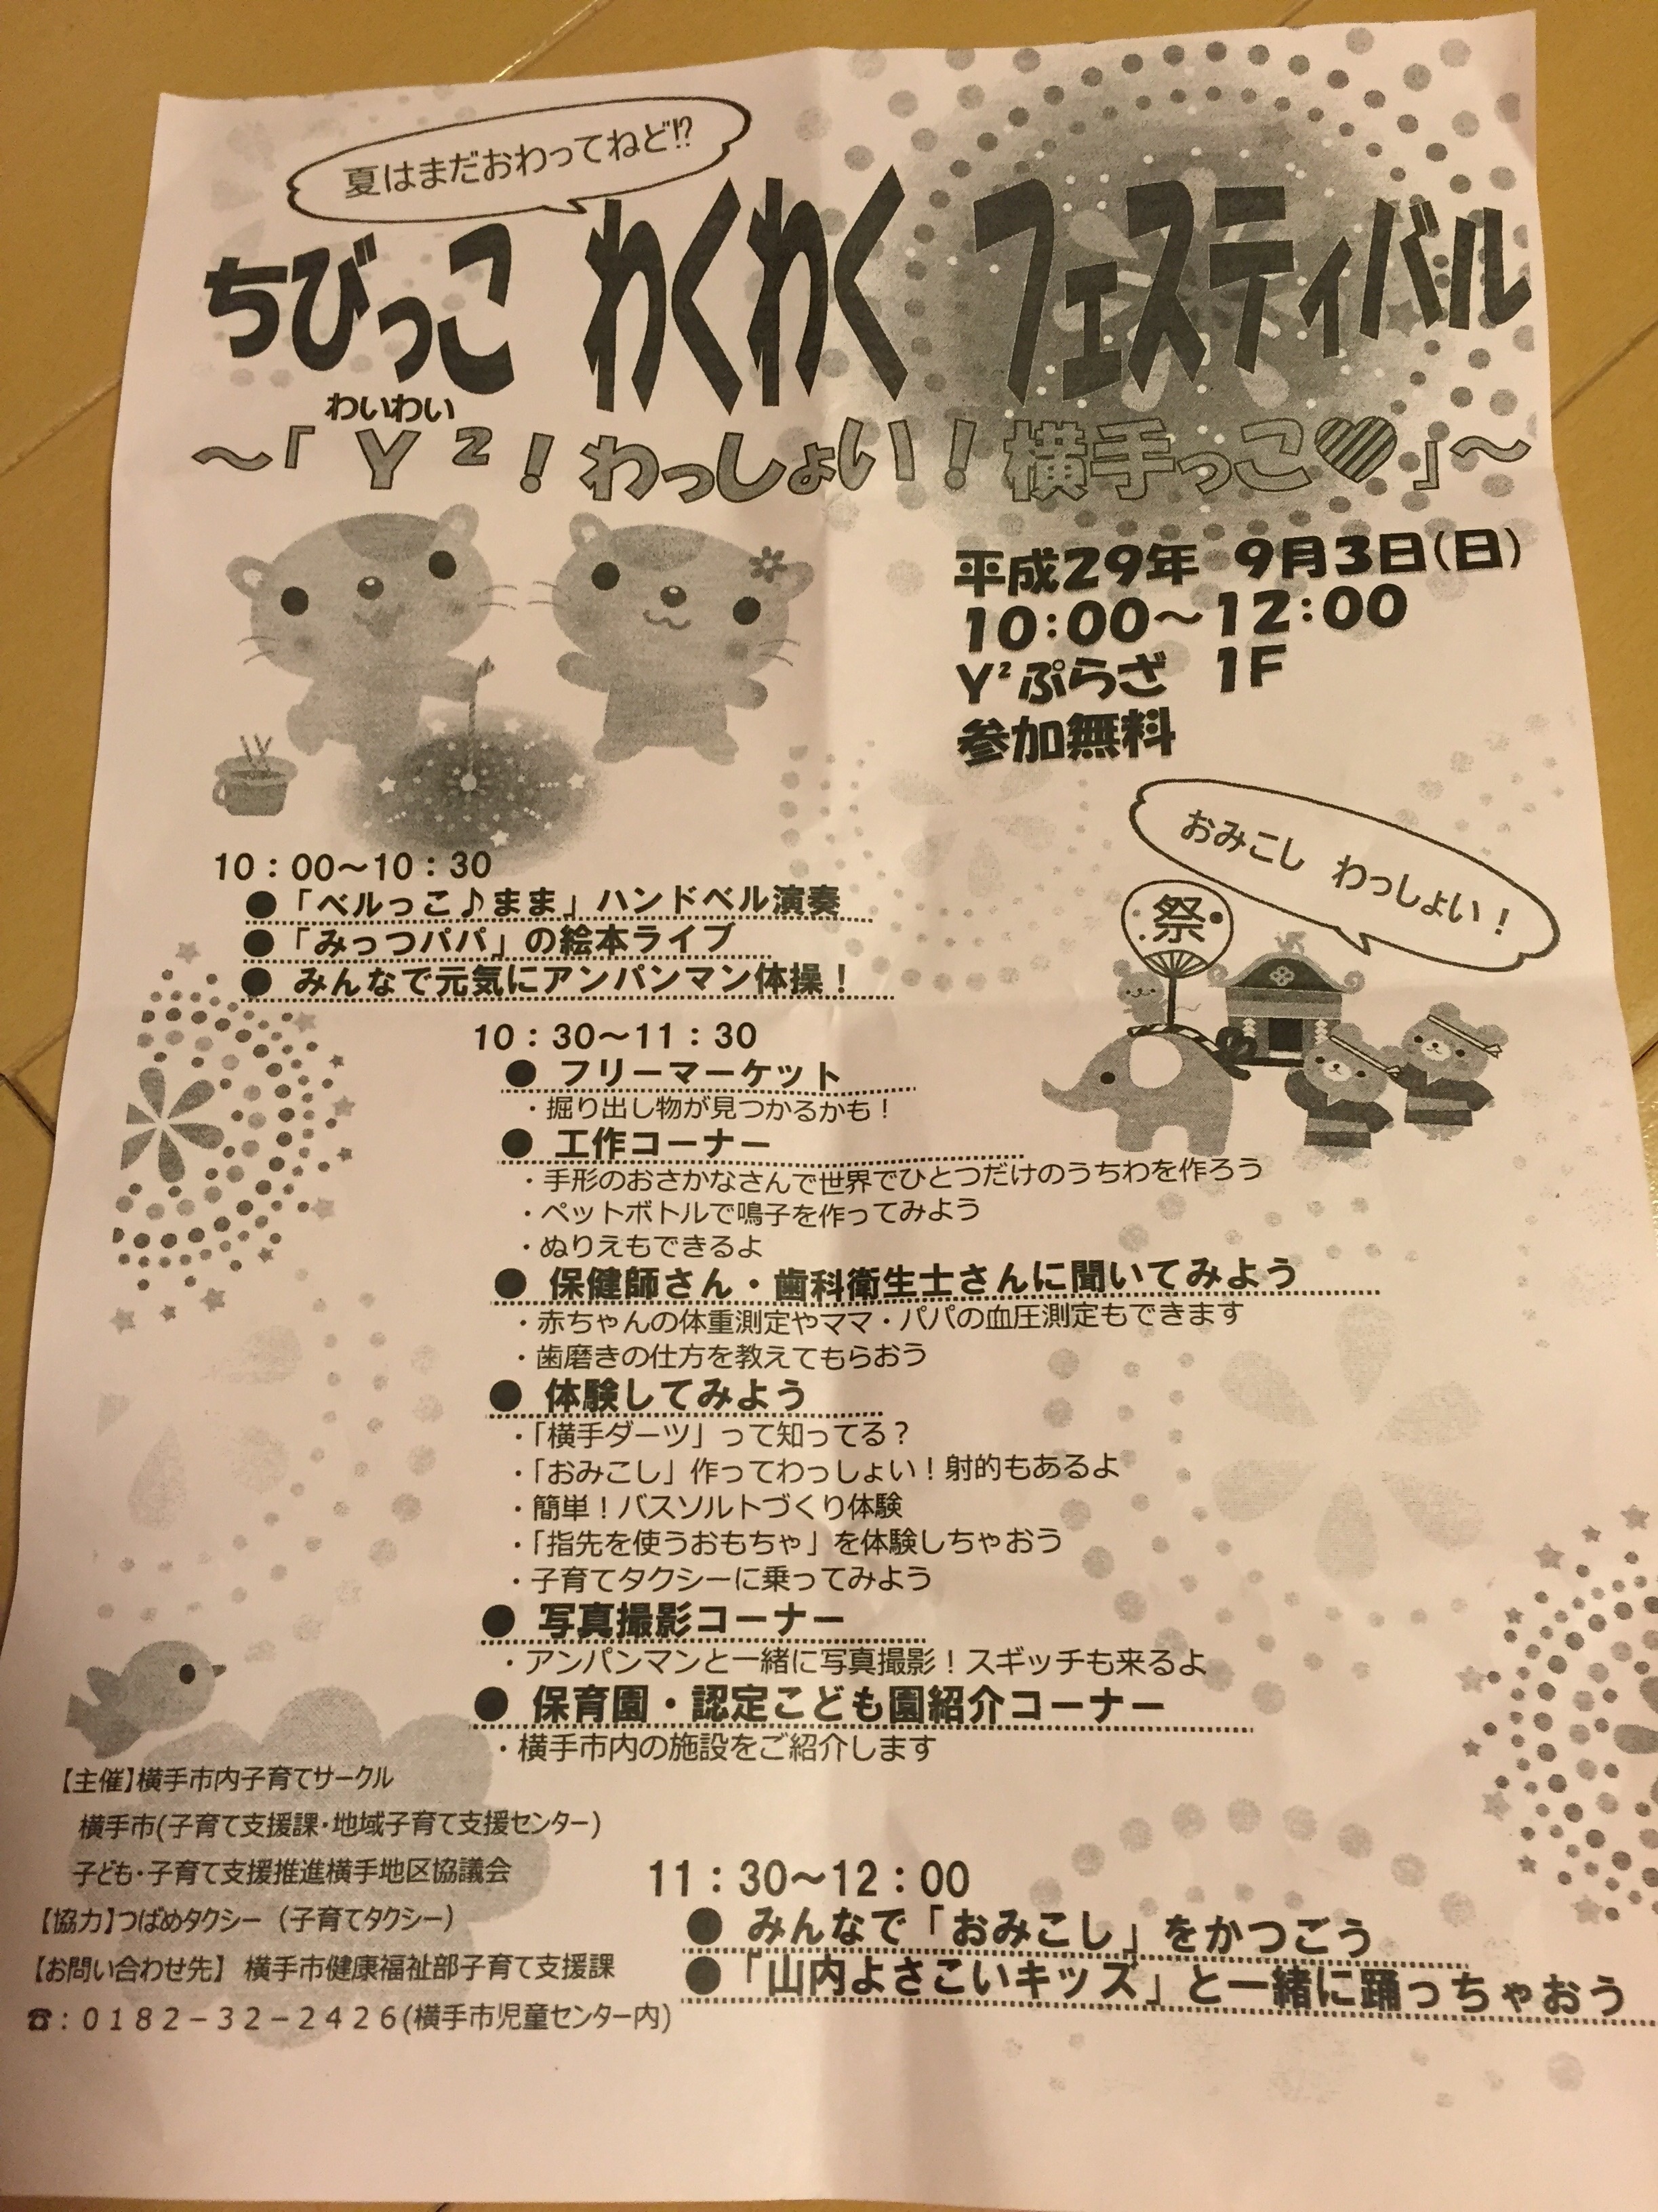 夏はまだおわってねど!?
ちびっこ わくわく フェスティバル
わいわい
～「Y²！わっしょい！横手っこ♥」～
平成29年 9月3日(日)
10:00～12:00
Y²ぷらざ 1F
参加無料
おみこし わっしょい！
祭
10：00～10：30
●「ベルっこ♪まま」ハンドベル演奏
●「みっつパパ」の絵本ライブ
● みんなで元気にアンパンマン体操！
10：30～11：30
● フリーマーケット
・掘り出し物が見つかるかも！
● 工作コーナー
・手形のおさかなさんで世界でひとつだけのうちわを作ろう
・ペットボトルで鳴子を作ってみよう
・ぬりえもできるよ
● 保健師さん・歯科衛生士さんに聞いてみよう
・赤ちゃんの体重測定やママ・パパの血圧測定もできます
・歯磨きの仕方を教えてもらおう
● 体験してみよう
・「横手ダーツ」って知ってる？
・「おみこし」作ってわっしょい！射的もあるよ
・簡単！バスソルトづくり体験
・「指先を使うおもちゃ」を体験しちゃおう
・子育てタクシーに乗ってみよう
● 写真撮影コーナー
・アンパンマンと一緒に写真撮影！スギッチも来るよ
● 保育園・認定こども園紹介コーナー
・横手市内の施設をご紹介します
【主催】横手市内子育てサークル
横手市(子育て支援課・地域子育て支援センター)
子ども・子育て支援推進横手地区協議会
【協力】つばめタクシー（子育てタクシー）
【お問い合わせ先】 横手市健康福祉部子育て支援課
☎：0182－32－2426(横手市児童センター内)
11：30～12：00
● みんなで「おみこし」をかつごう
●「山内よさこいキッズ」と一緒に踊っちゃおう